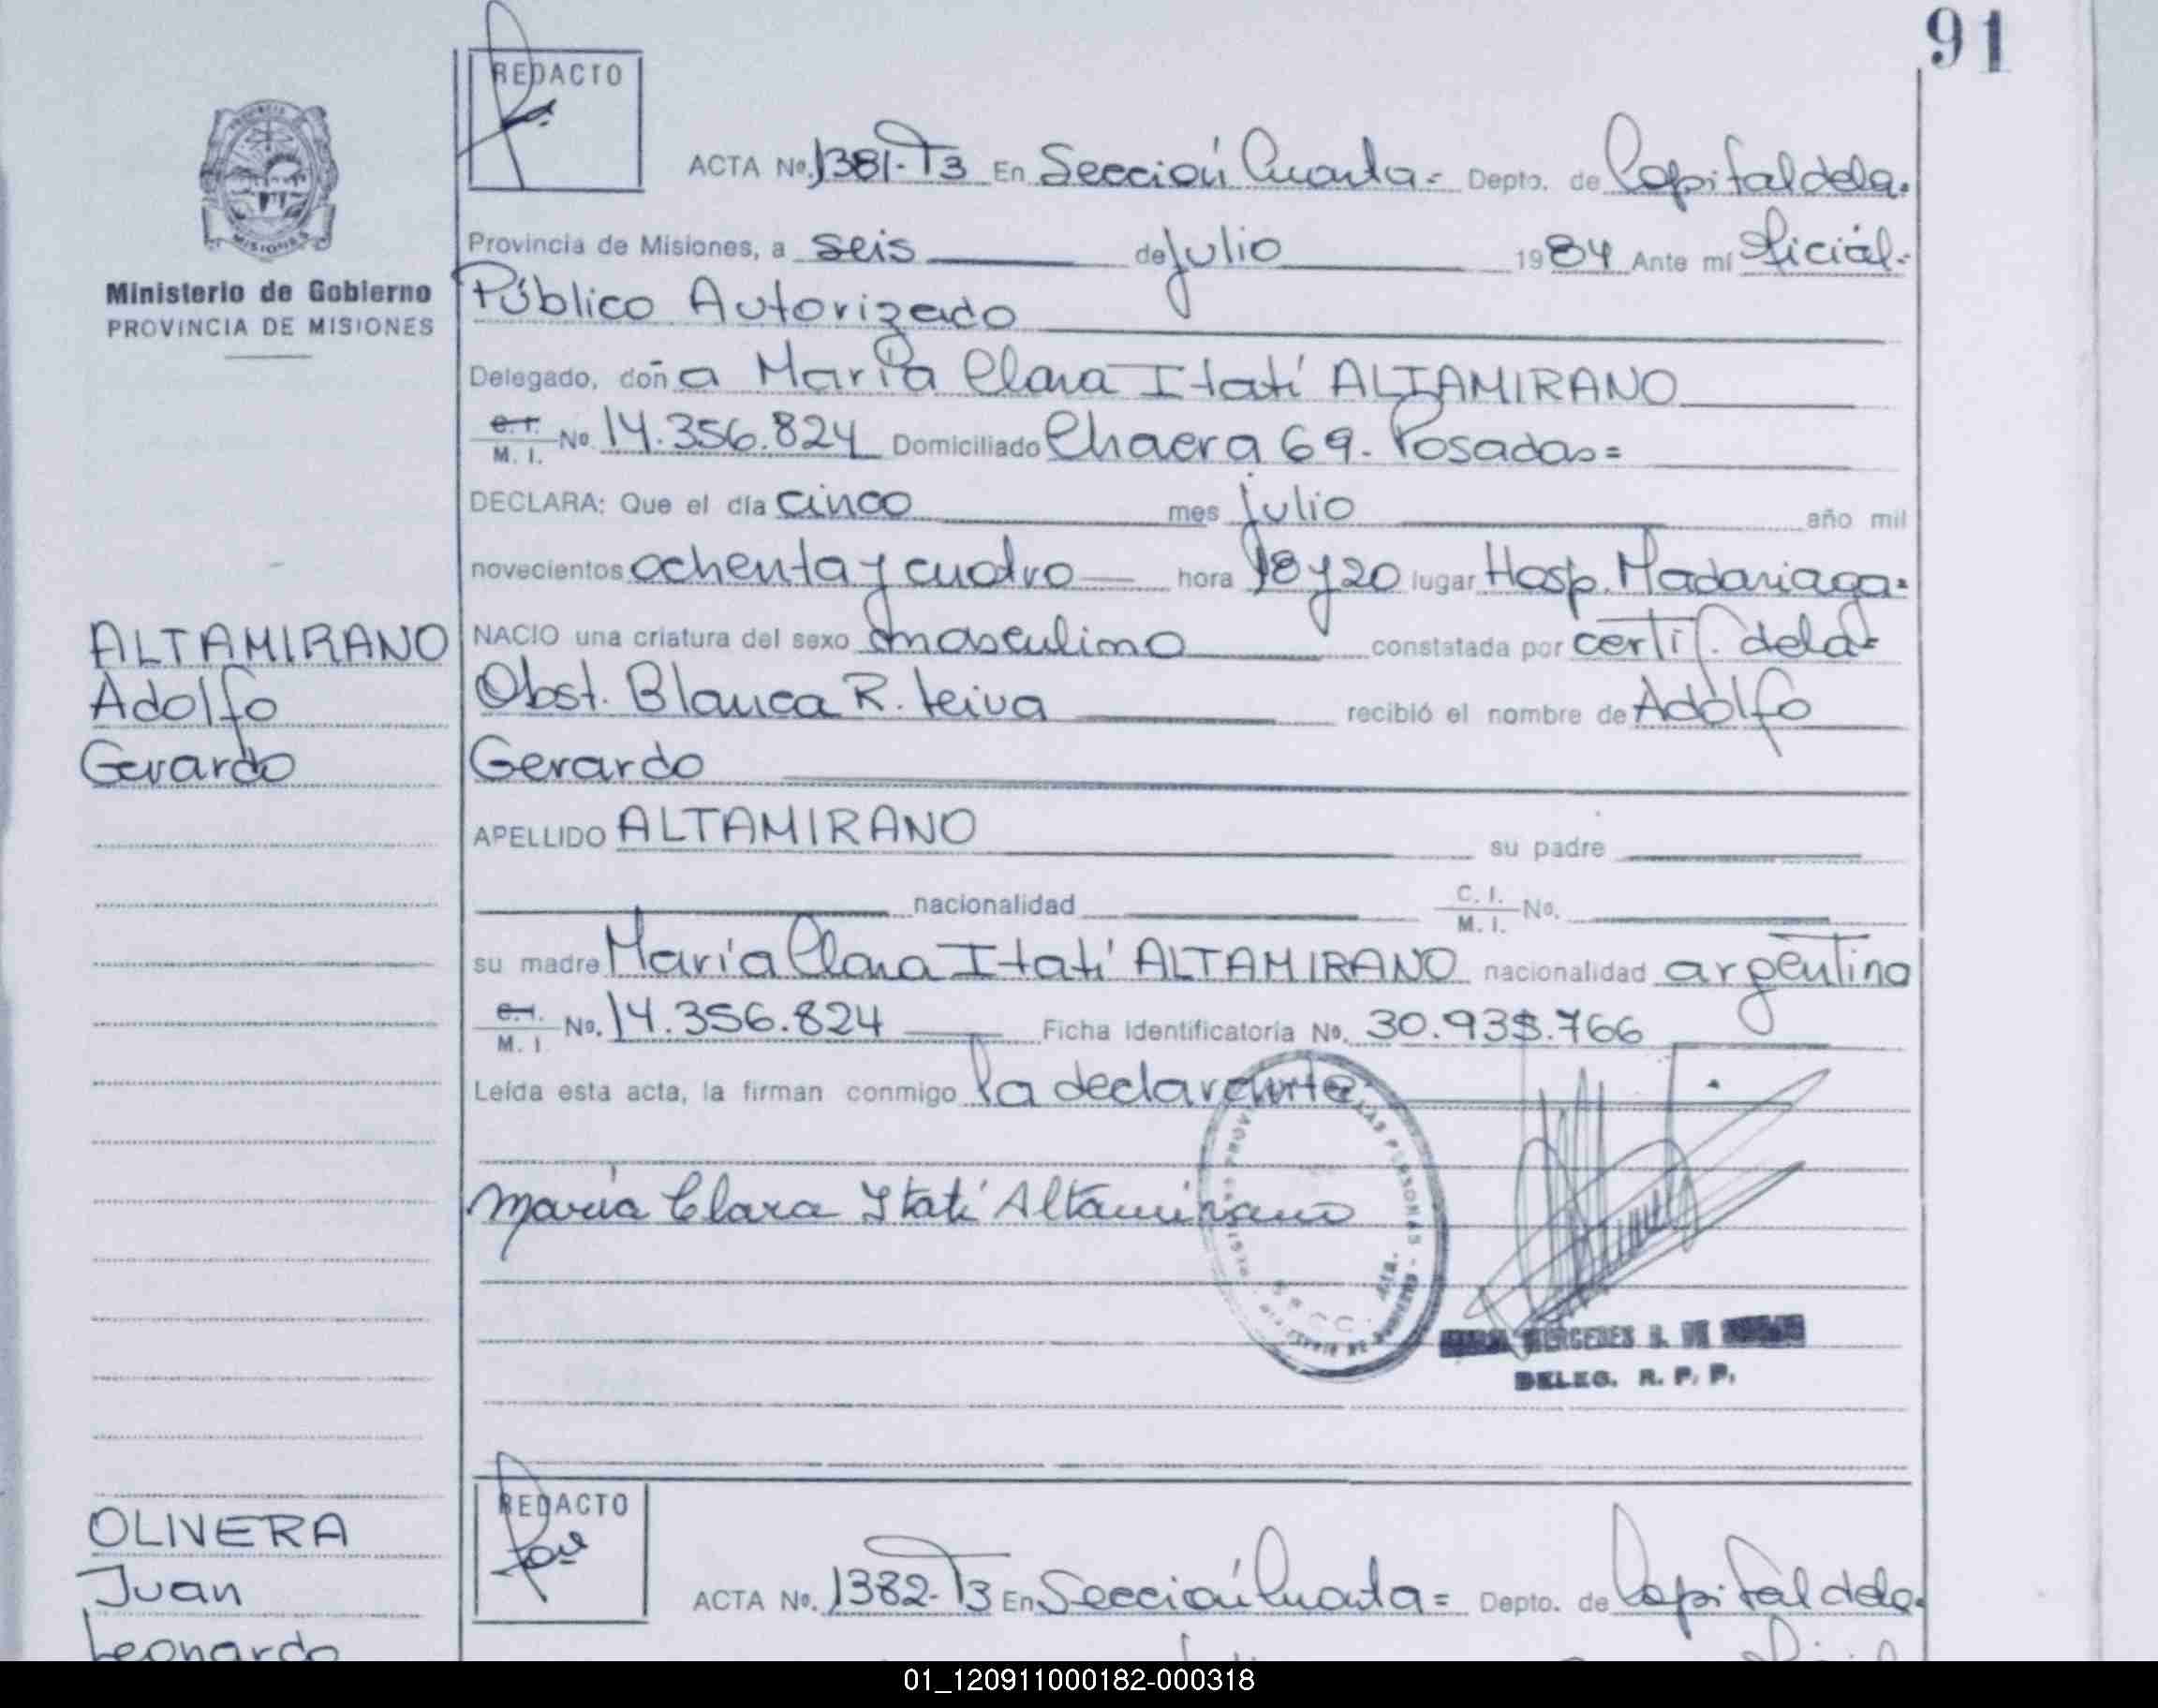 91
REDACTO
ACTA No. 1381-T3 En Sección Cuarta= Depto. de Capital de la.
Provincia de Misiones, a seis de julio 1984 Ante mí Oficial.
Ministerio de Gobierno
PROVINCIA DE MISIONES
Público Autorizado
Delegado, doña María Clara Itatí ALTAMIRANO
C.I. M. I. No 14.356.824 Domiciliado Chacra 69. Posadas=
DECLARA: Que el día cinco mes julio año mil
novecientos ochenta y cuatro hora 18 y 20 lugar Hosp. Madariaga.
ALTAMIRANO
Adolfo
Gerardo
NACIO una criatura del sexo masculino constatada por certif. de la
Obst. Blanca R. Leiva recibió el nombre de Adolfo
Gerardo
APELLIDO ALTAMIRANO su padre
nacionalidad C. I. M. I. No.
su madre María Clara Itatí ALTAMIRANO nacionalidad argentina
C.I. M. I No. 14.356.824 Ficha identificatoria No. 30.938.766
Leída esta acta, la firman conmigo la declarante
María Clara Itatí Altamirano
MERCEDES DE
DELEG. R. P. P.
OLIVERA
Juan
Leonardo
REDACTO
ACTA No. 1382-T3 En Sección Cuarta= Depto. de Capital de la.
01_120911000182-000318